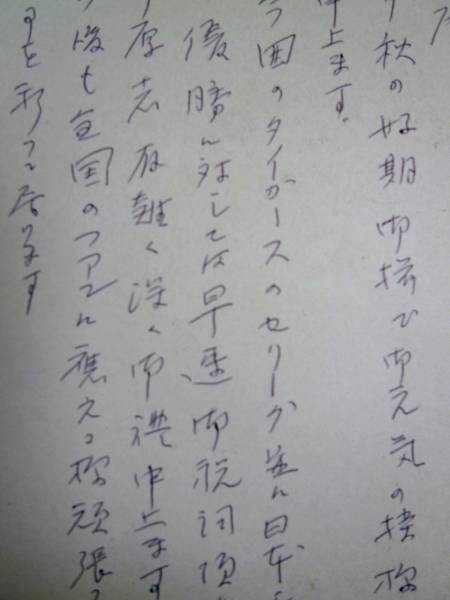 秋の好期 御揃ひ御元気の様
申上ます。
今回のタイガースのセリーグ並に日本
優勝に対しては早速御祝詞頂
厚志有難く深く御禮申上ます
後も全国のファンに應える様頑張
すと祈って居ります